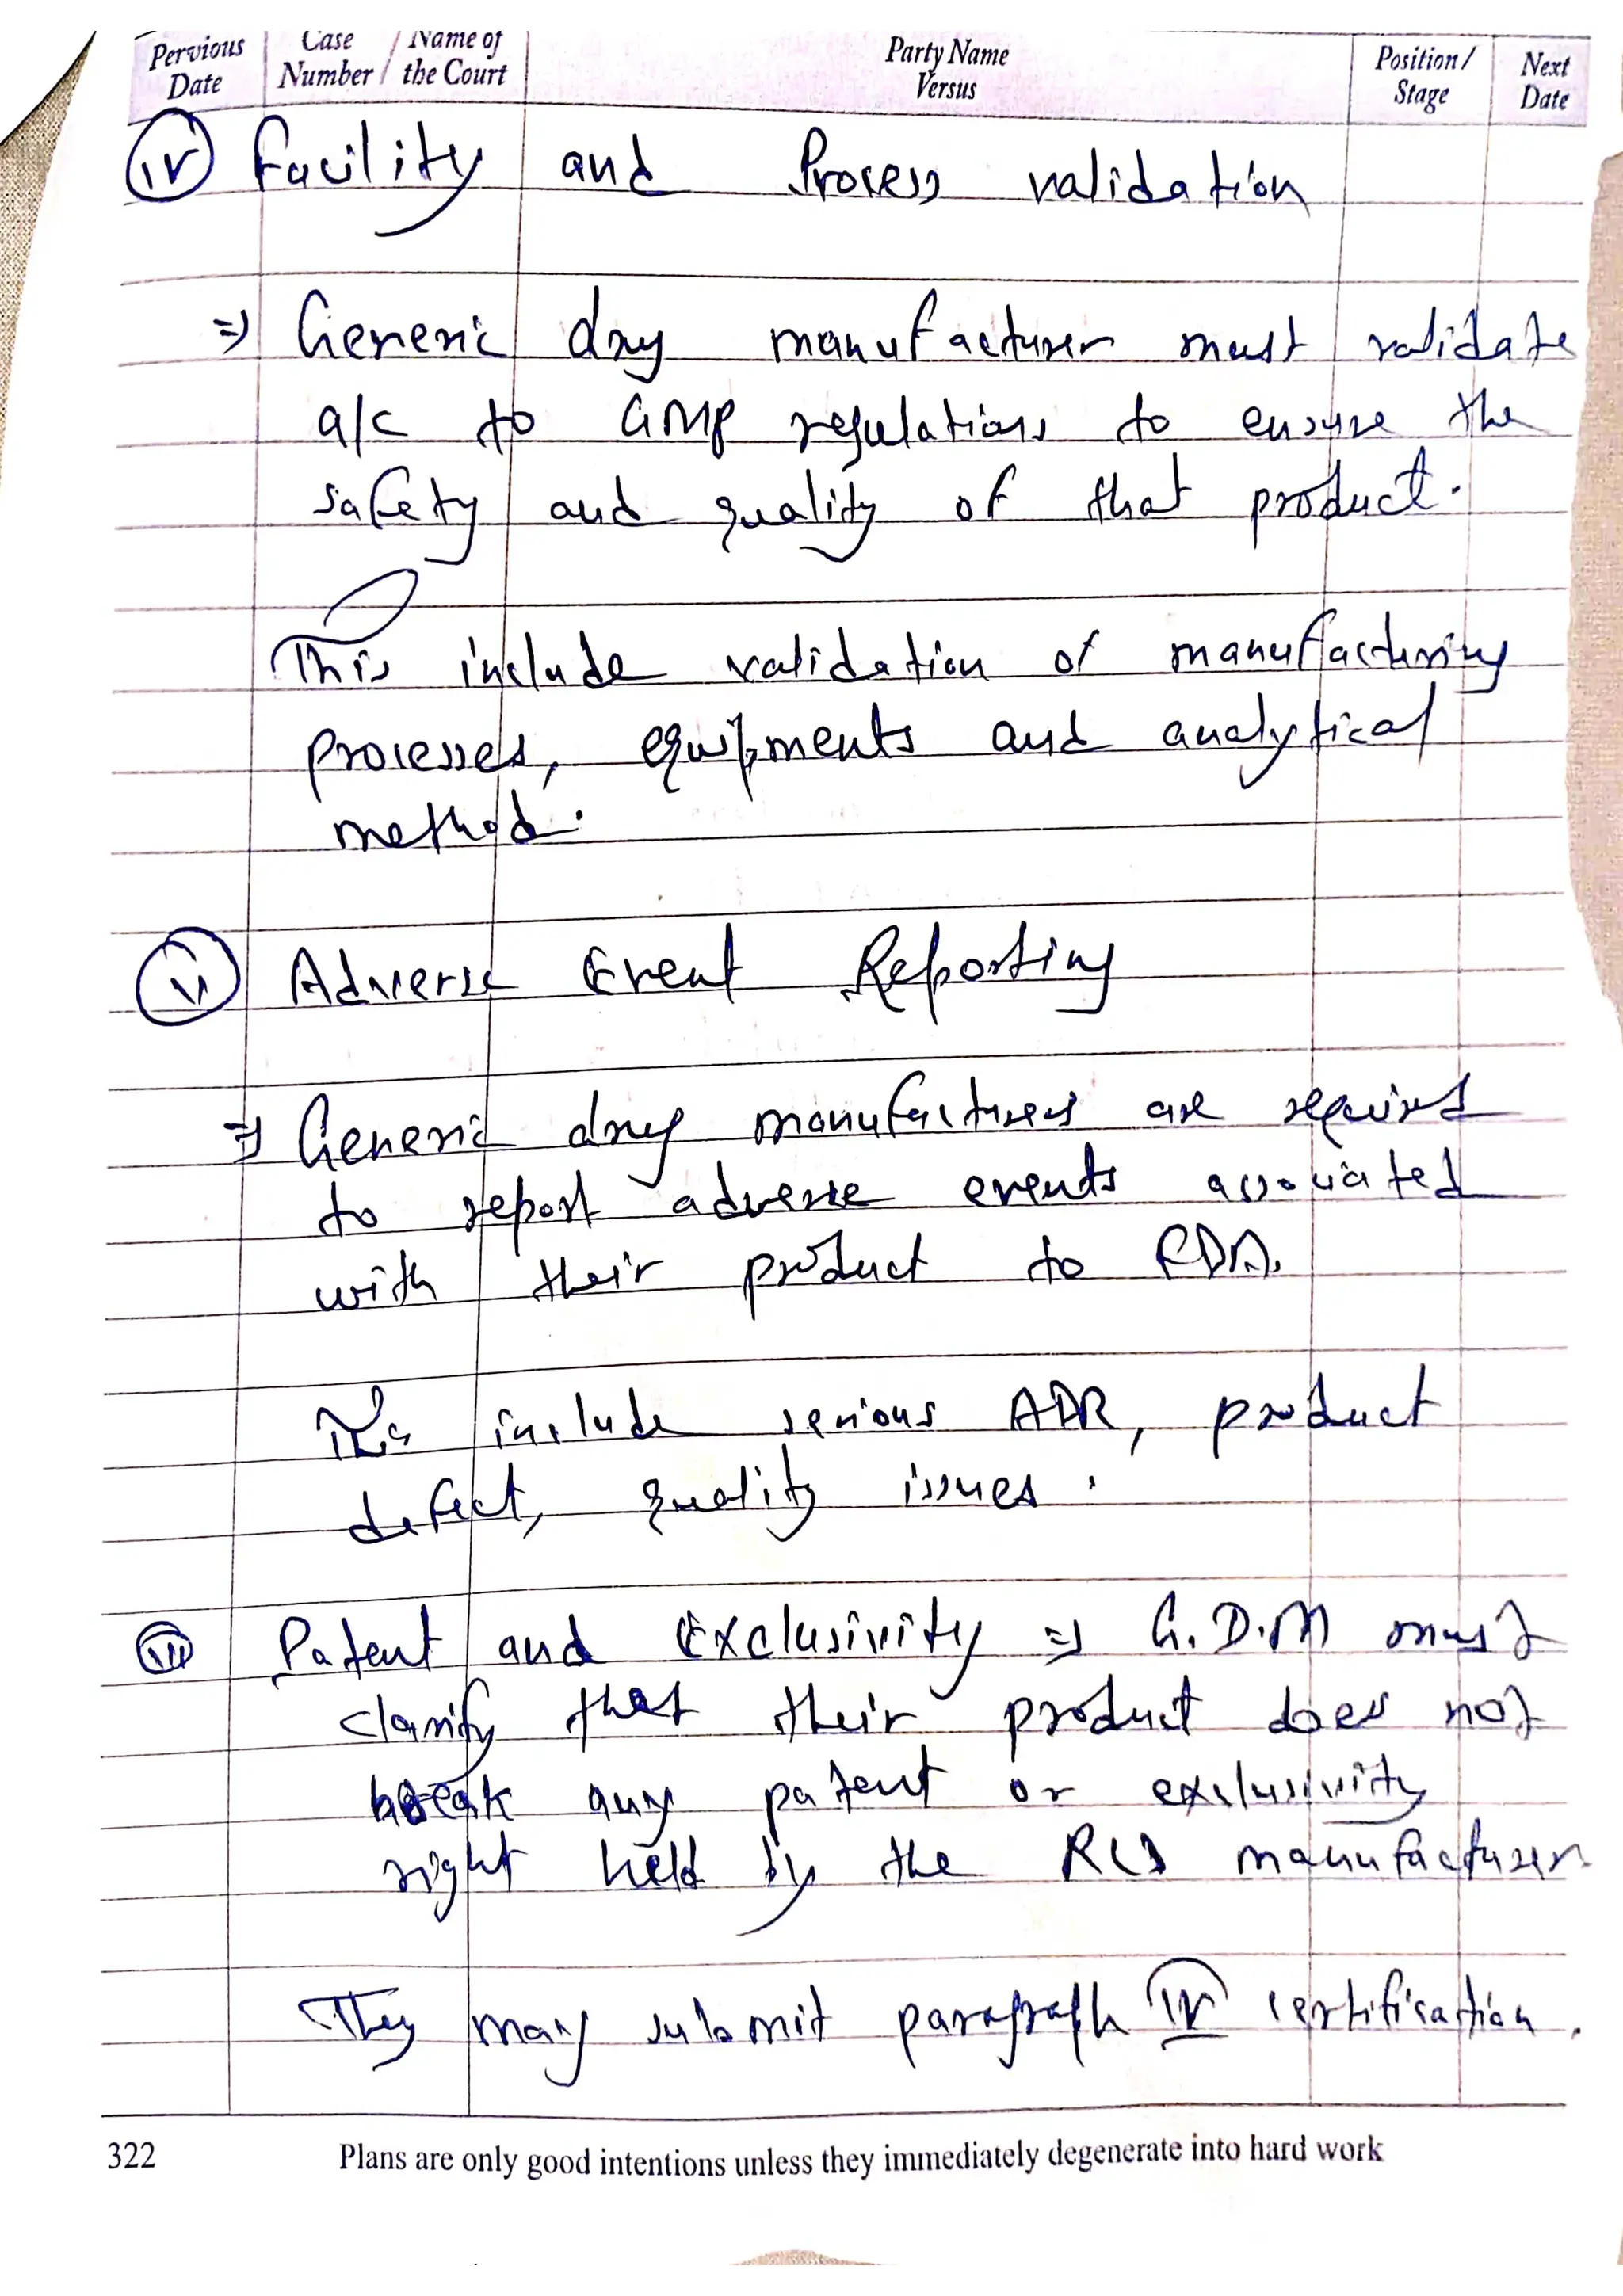 Pervious Date | Case Number / Name of the Court | Party Name Versus | Position / Stage | Next Date
(iv) Facility and Process validation
⇒ Generic drug manufacturer must validate
a/c to GMP regulations to ensure the
safety and quality of that product.
This include validation of manufacturing
processes, equipments and analytical
method.
(vi) Adverse Event Reporting
⇒ Generic drug manufacturers are required
to report adverse events associated
with their product to FDA.
This include serious ADR, product
defect, quality issues.
(vii) Patent and Exclusivity ⇒ G.D.M must
clarify that their product does not
break any patent or exclusivity
right held by the RLD manufacturer.
They may submit paragraph IV certification.
322 Plans are only good intentions unless they immediately degenerate into hard work